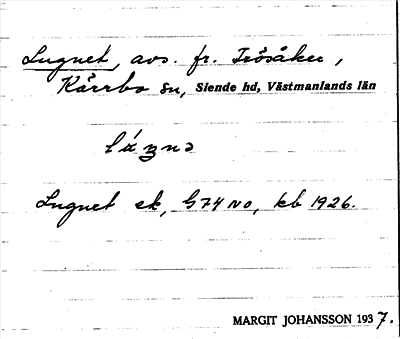 Lugnet, avs. fr. Trösåker,
Kärrbo sn, Siende hd, Västmanlands län
Lugnet ek, G74 NO, kb 1926.
MARGIT JOHANSSON 1937.